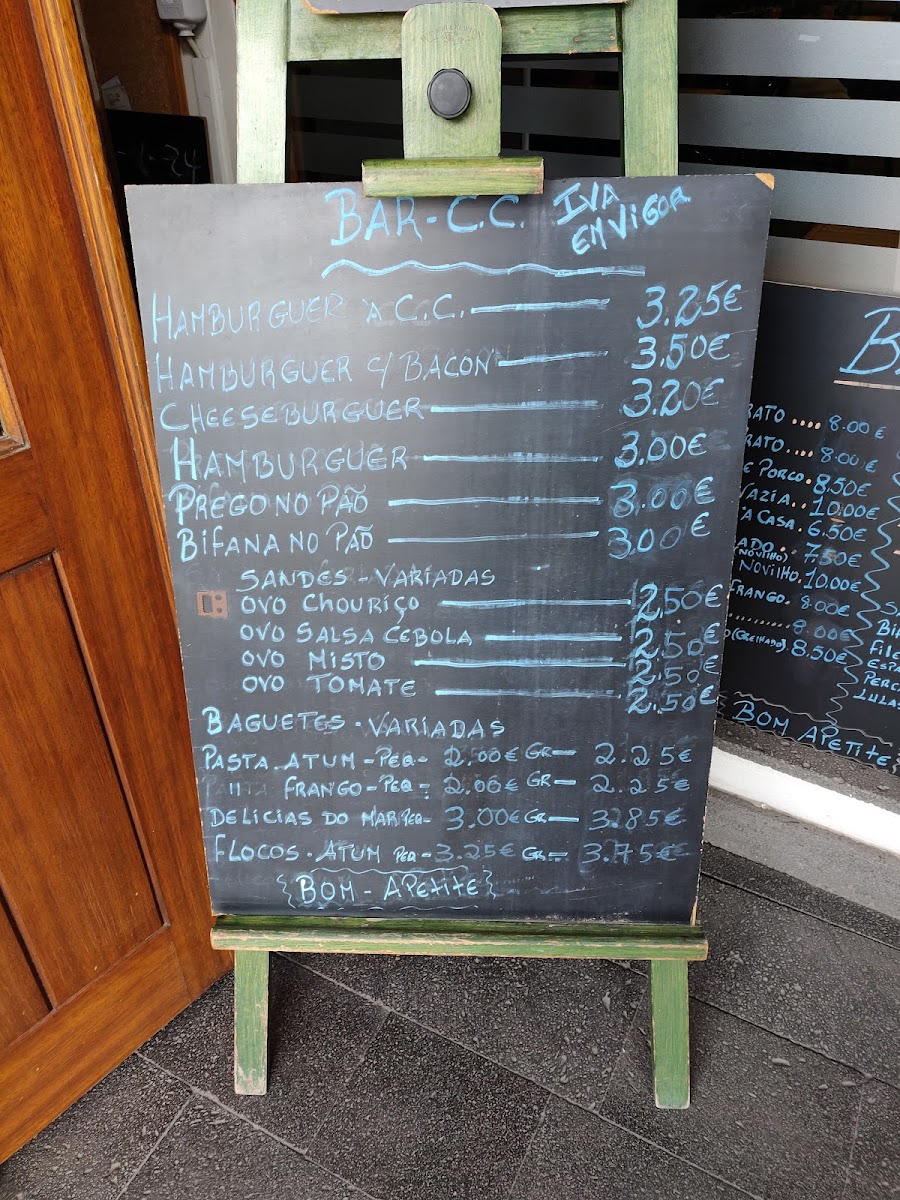 BAR-C.C. IVA EM VIGOR
HAMBURGUER À C.C. 3.25€
HAMBURGUER C/ BACON 3.50€
CHEESEBURGUER 3.20€
HAMBURGUER 3.00€
PREGO NO PÃO 3.00€
BIFANA NO PÃO 3.00€
SANDES - VARIADAS
OVO CHOURIÇO 2.50€
OVO SALSA CEBOLA 2.50€
OVO MISTO 2.50€
OVO TOMATE 2.50€
BAGUETES - VARIADAS
PASTA. ATUM - PEQ - 2.00€ GR - 2.25€
" FRANGO - PEQ - 2.00€ GR - 2.25€
DELICIAS DO MAR PEQ - 3.00€ GR - 3.85€
FLOCOS. ATUM PEQ - 3.25€ GR - 3.75€
BOM - APETITE
RATO .... 8.00€
RATO .... 8.00€
E PORCO. 8.50€
VAZIA.. 10.00€
'A CASA. 6.50€
ADO.. 7.50€
(NOVILHO)
NOVILHO. 10.00€
FRANGO. 8.00€
......... 8.00€
(GRELHADO). 8.50€
BIF
FILE
ESPA
PERC
LULAS
BOM APETITE